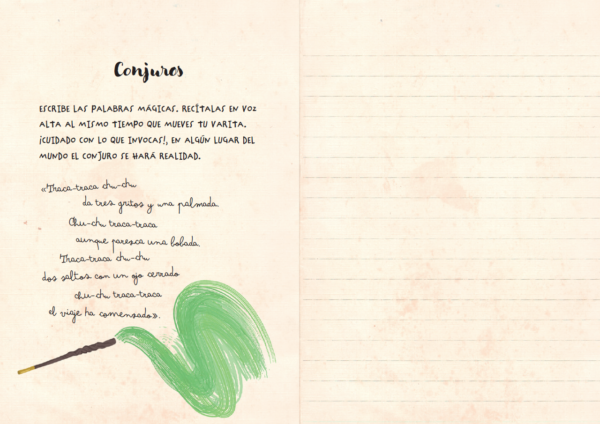 Conjuros
ESCRIBE LAS PALABRAS MÁGICAS. RECÍTALAS EN VOZ
ALTA AL MISMO TIEMPO QUE MUEVES TU VARITA.
¡CUIDADO CON LO QUE INVOCAS!, EN ALGÚN LUGAR DEL
MUNDO EL CONJURO SE HARÁ REALIDAD.
«Traca-traca chu-chu
da tres gritos y una palmada.
Chu-chu traca-traca
aunque parezca una bobada.
Traca-traca chu-chu
dos saltos con un ojo cerrado
chu-chu traca-traca
el viaje ha comenzado».